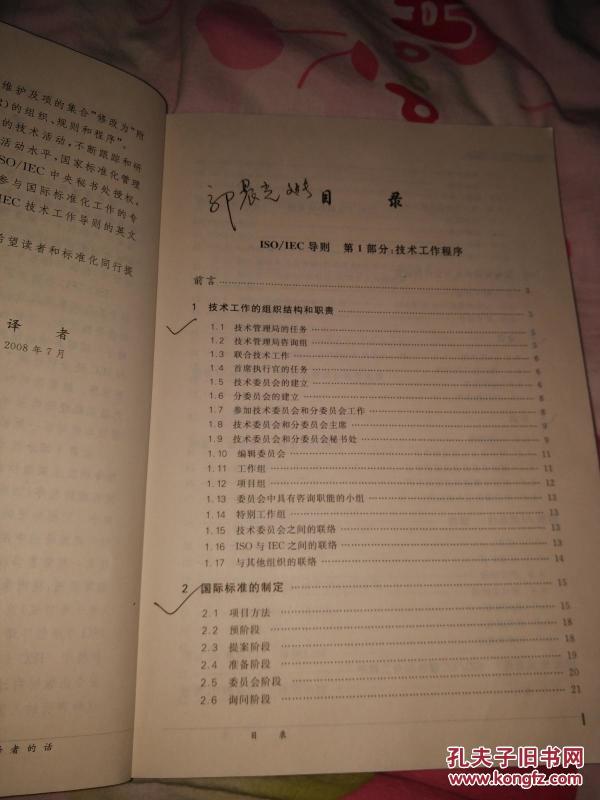 维护及项的集合"修改为"附
的组织、规则和程序"。
的技术活动，不断跟踪和研
活动水平，国家标准化管理
ISO/IEC 中央秘书处授权，
参与国际标准化工作的专
IEC 技术工作导则的英文
希望读者和标准化同行提
译 者
2008 年 7 月
者的话
目 录
ISO/IEC 导则 第 1 部分：技术工作程序
前言
1 技术工作的组织结构和职责
1.1 技术管理局的任务
1.2 技术管理局咨询组 5
1.3 联合技术工作 5
1.4 首席执行官的任务 6
1.5 技术委员会的建立 6
1.6 分委员会的建立 8
1.7 参加技术委员会和分委员会工作 8
1.8 技术委员会和分委员会主席 9
1.9 技术委员会和分委员会秘书处 9
1.10 编辑委员会 11
1.11 工作组 11
1.12 项目组 12
1.13 委员会中具有咨询职能的小组 12
1.14 特别工作组 13
1.15 技术委员会之间的联络 13
1.16 ISO 与 IEC 之间的联络 13
1.17 与其他组织的联络 14
2 国际标准的制定 15
2.1 项目方法 15
2.2 预阶段 18
2.3 提案阶段 18
2.4 准备阶段 19
2.5 委员会阶段 20
2.6 询问阶段 21
目 录
孔夫子旧书网
www.kongfz.com